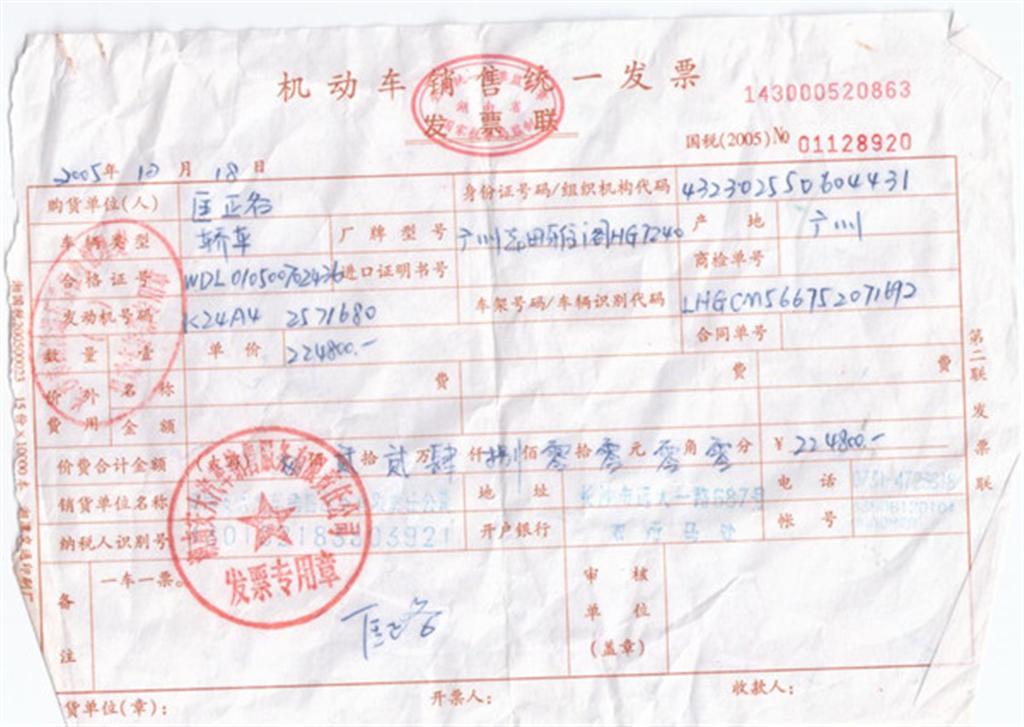 机动车销售统一发票
发票联
143000520863
国税(2005)№ 01128920
2005年 12 月 18 日
购货单位(人) 匡正名 身份证号码/组织机构代码 432302550604431
车辆类型 轿车 厂牌型号 广州本田雅阁HG7240 产地 广州
合格证号 WDL010500702436 进口证明书号 商检单号
发动机号码 K24A4 2571680 车架号码/车辆识别代码 LHGCM566752071692
数量 壹 单价 224800.- 合同单号
价外费用 名称 费 费 费
金额
价费合计金额 (大写) 贰拾贰万肆仟捌佰零拾零元零角零分 ¥ 224800.-
销货单位名称 地址 长沙市远大一路687号 电话
纳税人识别号 开户银行 帐号
备注 一车一票。
匡正名
审核单位(盖章)
发票专用章
第二联 发票联
货单位(章): 开票人: 收款人: